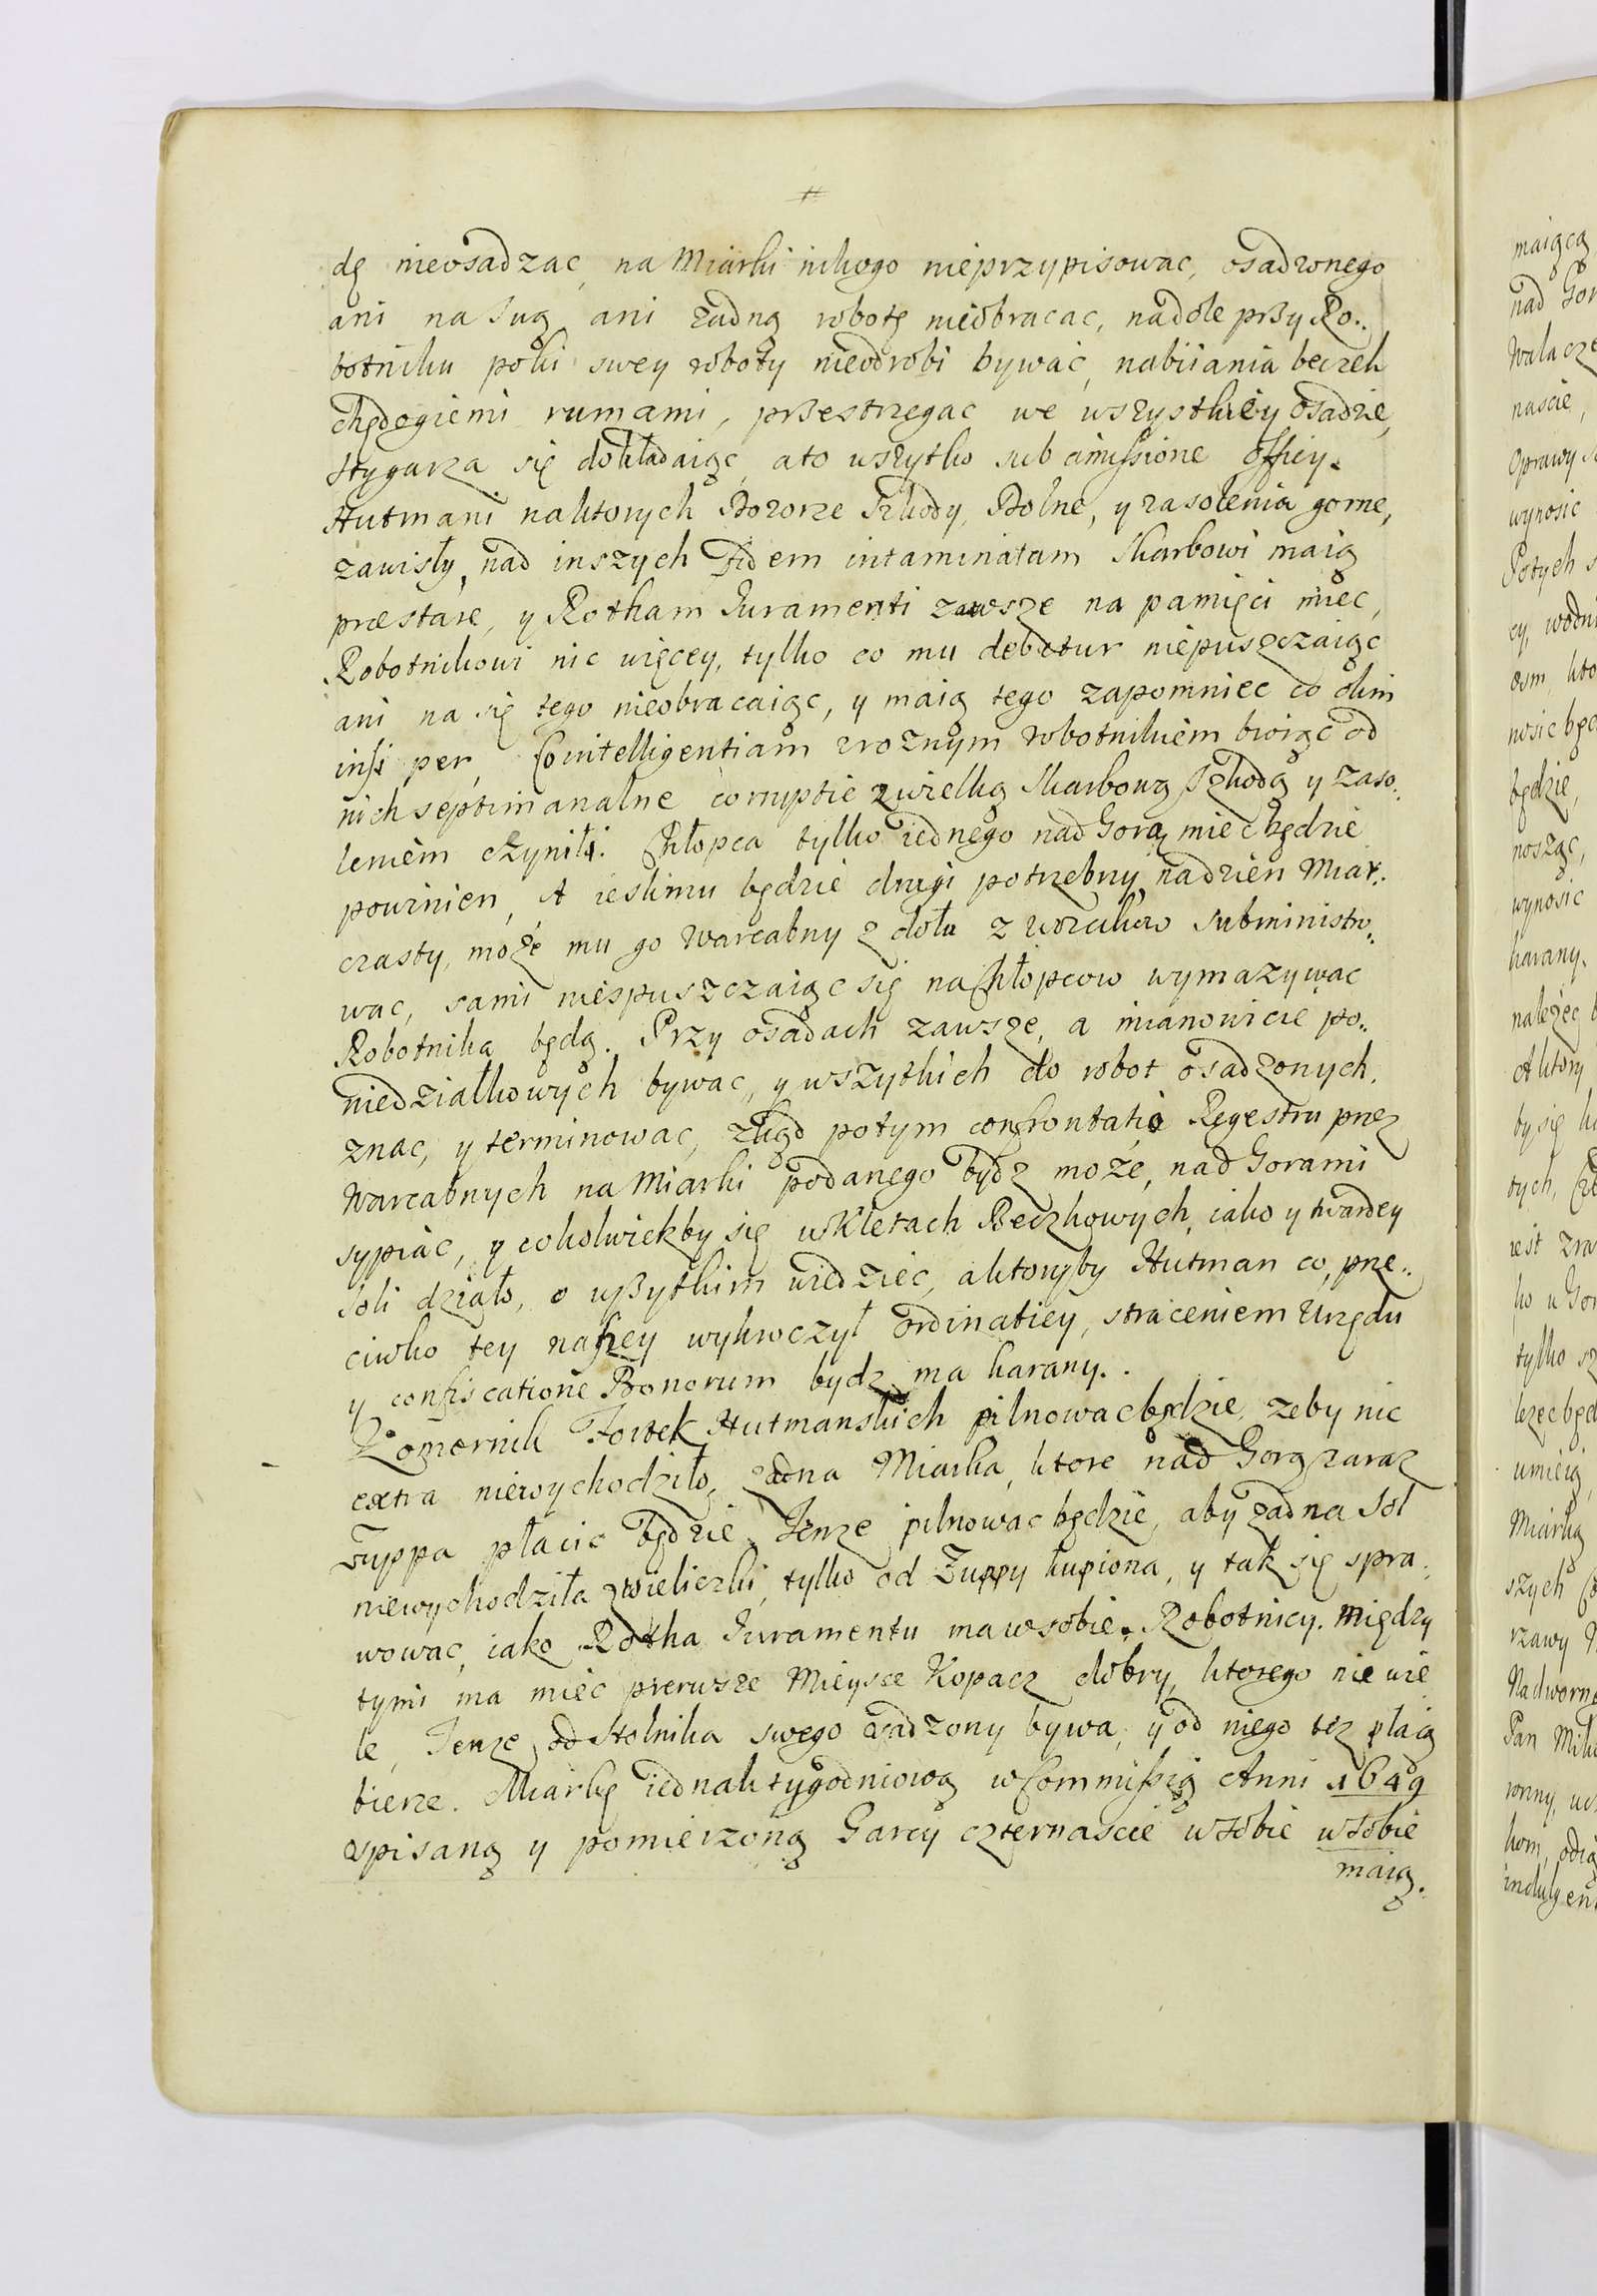 #
dę nieosadzac, na Miarki nikogo nieprzypisowac, osadzonego
ani na swą ani żadną robotę nieobracac, nadole przy Ro..
botniku poki swey roboty nieodrobi bywać, nabiiania beczek
chędogiemi rumami, przestrzegac we wszystkiey osadzie,
Stygarza się dokładaiąc, ato wszytko sub amissione Officy.
Hutmani naktorych Dozorze Szkody, Dolne, y zasolenia gorne,
zawisły, nad inszych Fidem intaminatam Skarbowi maią
præstare, y Rotham Iuramenti zawsze na pamięci miec,
Robotnikowi nic więcey, tylko co mu debetur niepuszczaiąc
ani na się tego nieobracaiąc, y maią tego zapomniec co olim
inszi per, Cointelligentiam zroznym robotnikiem biorąc od
nich septimanalne corruptie zwielką Skarbową szkodą y zaso..
leniem czynili. Chłopca tylko iednego nad Gorą miec będzie
powinien, A ieslimu będzie drugi potrzebny nadzien Miar..
czasty, może mu go Warcabny z dołu z wozakow subministro..
wac, sami niespuszczaiąc się na Chłopcow wymazywac
Robotnika będą. Przy osadach zawsze, a mianowicie po..
niedziałkowych bywac, y wszytkich do robot osadzonych
znac, y terminowac, zkąd potym confrontatio Regestru przez
Warcabnych na Miarki podanego bydz może, nad Gorami
sypiac, y cokolwiekby się wKletach Beczkowych, iako y twardey
soli działo, o wszytkim wiedziec, aktoryby Hutman co, prze..
ciwko tey naszey wykroczył Ordinatiey, straceniem Urzędu
y confiscatione Bonorum bydz ma karany.
Komornik Fortek Hutmanskich pilnowac będzie, zeby nic
extra niewychodziło, żadna Miarka, ktore nad Gorą zaraz
Zuppa płacic będzie. Tenze pilnowac będzie, aby żadna sol
niewychodziła zWieliczki, tylko od Zuppy kupiona, y tak się spra..
wowac, iako Rotha Iuramentu ma wsobie. Robotnicy. Między
tymi ma miec pierwsze Mieysce Kopacz dobry, ktorego nie wie
le, Tenze od Stolnika swego osadzony bywa, y od niego tez płacą
bierze. Miarkę iednak tygodniową wCommissią Anni 1649
opisaną y pomierzoną Garcy czternascie wsobie wsobie
maią.
maiącą
nad Gor
Walacze
nascie,
Oprawy
wynosic
Potych
cy, wodn
osm, kto
nosic będ
będzie,
nosząc,
wynosic
karany.
nalezec
A ktory
by się
tych,
iest
ko u Gor
tylko
lezec będ
umieią
Miarką
szych
rzawy
Nadworne
Pan Mik
ronny,
kom, odią
indulgen